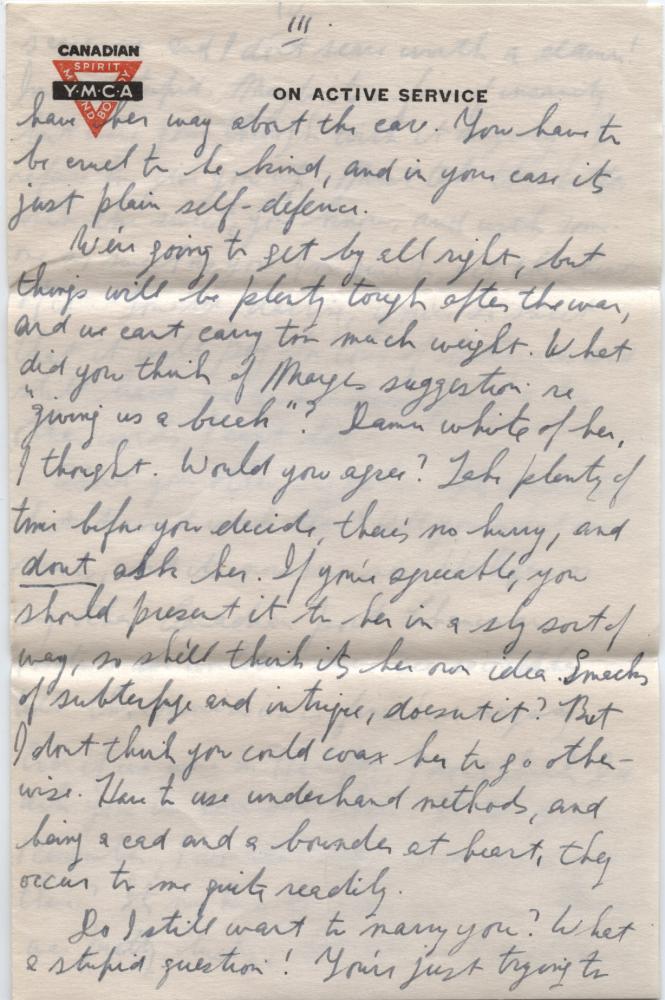 III
CANADIAN
SPIRIT
Y·M·C·A
MIND
BODY
ON ACTIVE SERVICE
have her way about the car. You have to
be cruel to be kind, and in your case its
just plain self-defence.
We're going to get by all right, but
things will be plenty tough after the war,
and we cant carry too much weight. What
did you think of Marg's suggestion re
"giving us a break"? Damn white of her,
I thought. Would you agree? Take plenty of
time before you decide, there's no hurry, and
dont ask her. If you're agreeable, you
should present it to her in a sly sort of
way, so she'll think its her own idea. Smacks
of subterfuge and intrigue, doesnt it? But
I dont think you could coax her to go other-
wise. Have to use underhand methods, and
being a cad and a bounder at heart, they
occur to me quite readily.
Do I still want to marry you? What
a stupid question! You're just trying to